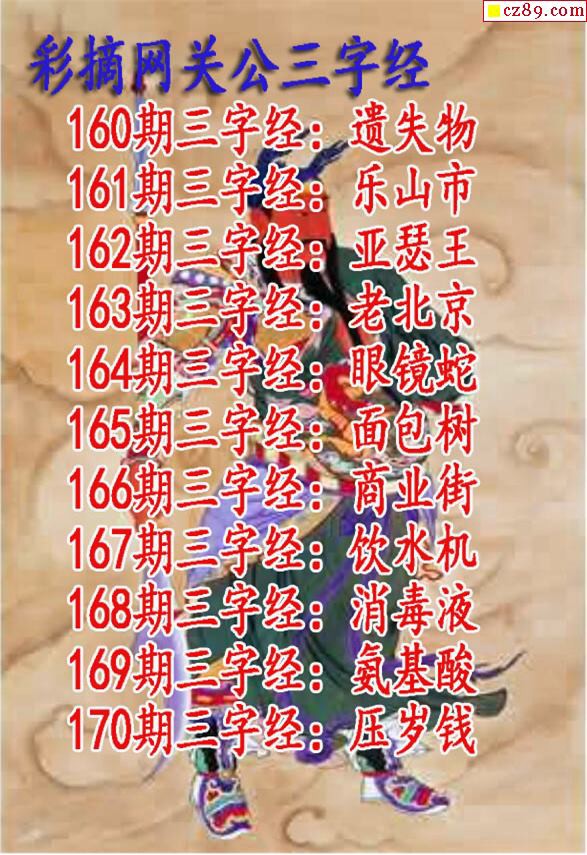 cz89.com
彩摘网关公三字经
160期三字经：遗失物
161期三字经：乐山市
162期三字经：亚瑟王
163期三字经：老北京
164期三字经：眼镜蛇
165期三字经：面包树
166期三字经：商业街
167期三字经：饮水机
168期三字经：消毒液
169期三字经：氨基酸
170期三字经：压岁钱